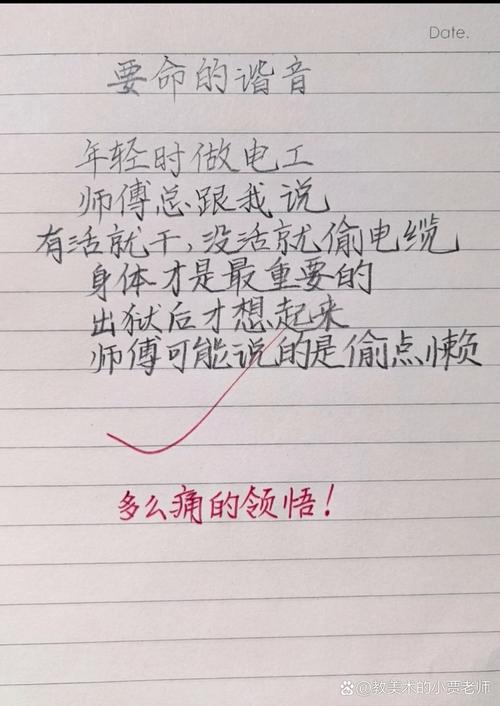 Date.
要命的谐音
年轻时做电工
师傅总跟我说
有活就干,没活就偷电缆
身体才是最重要的
出狱后才想起来
师傅可能说的是偷点懒
多么痛的领悟!
@教美术的小贾老师